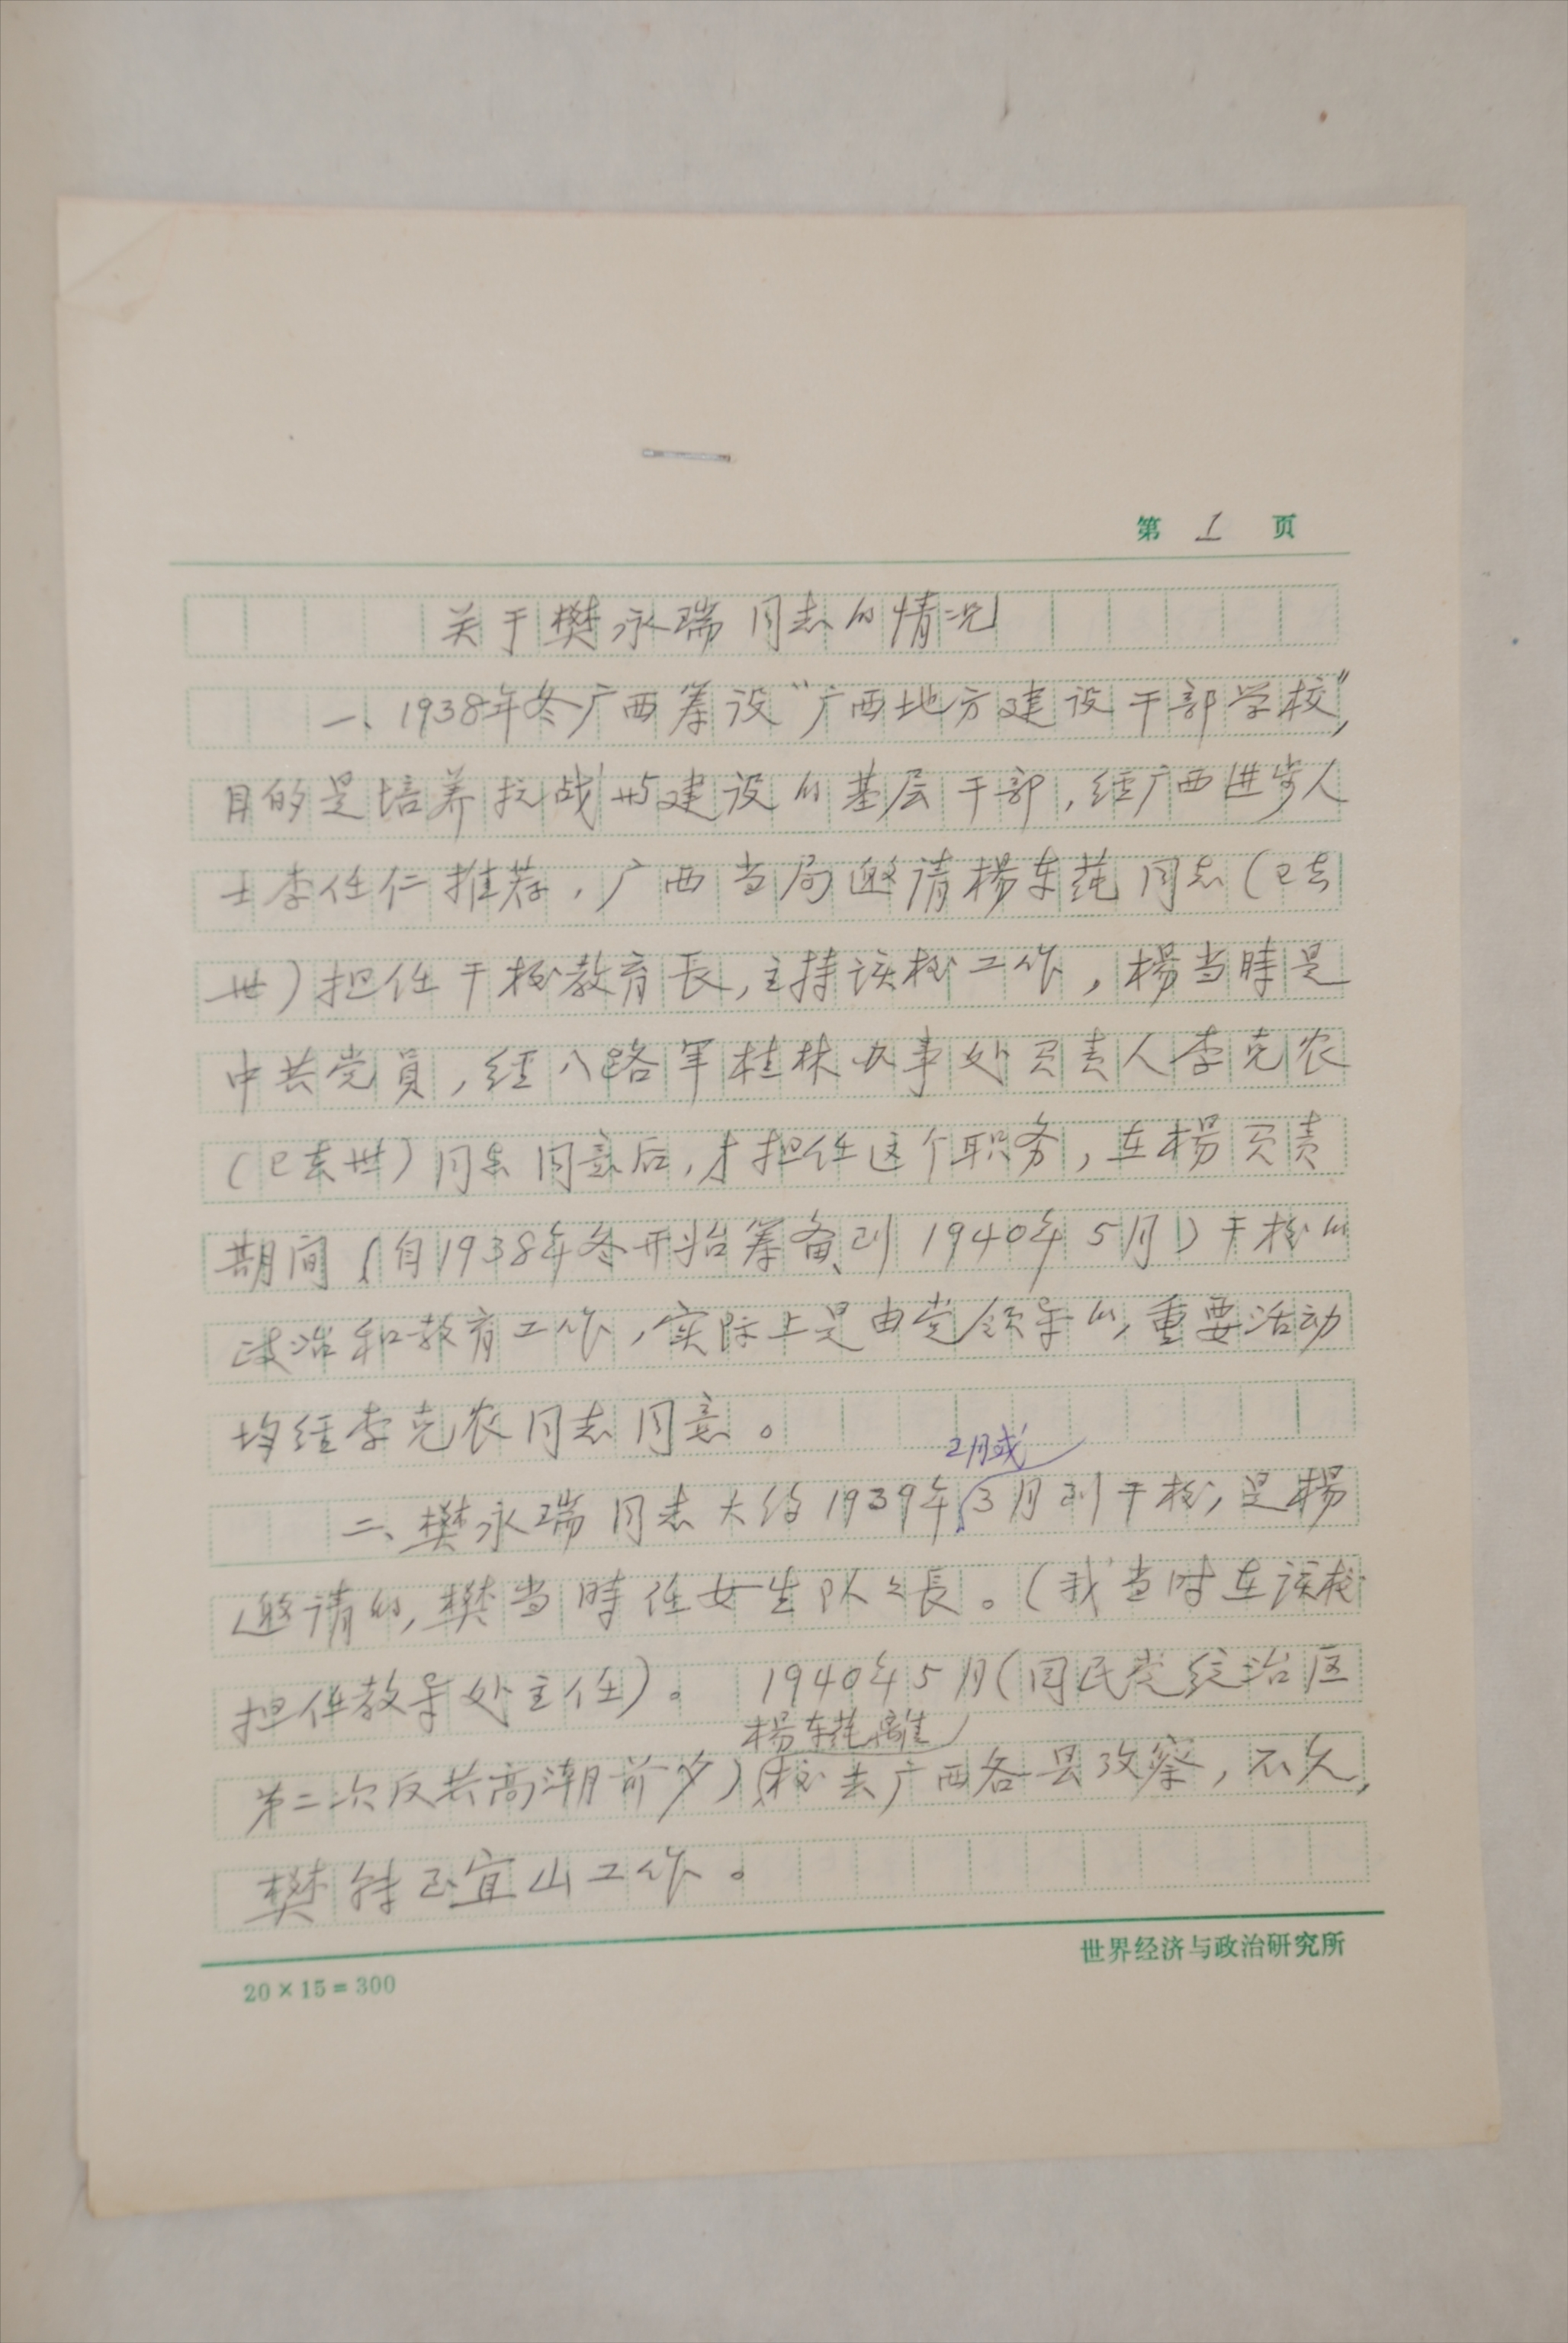 第 1 页
关于樊永瑞同志的情况
一、1938年冬广西筹设“广西地方建设干部学校”,
目的是培养抗战与建设的基层干部,经广西进步人
士李任仁推荐,广西当局邀请楊东莼同志(已去
世)担任干校教育長,主持该校工作,楊当時是
中共党員,经八路军桂林办事处负责人李克农
(已去世)同志同意后,才担任这个职务,在楊负责
期间(自1938年冬开始筹备到1940年5月)干校的
政治和教育工作,实际上是由党领导的,重要活动
均经李克农同志同意。
2月或
二、樊永瑞同志大约1939年3月到干校,是楊
邀请的,樊当時任女生队队長。(我当时在该校
担任教导处主任)。 1940年5月(国民党统治区
楊东莼離
第二次反共高潮前夕)校去广西各县攷察,不久,
樊转到宜山工作。
世界经济与政治研究所
20×15=300